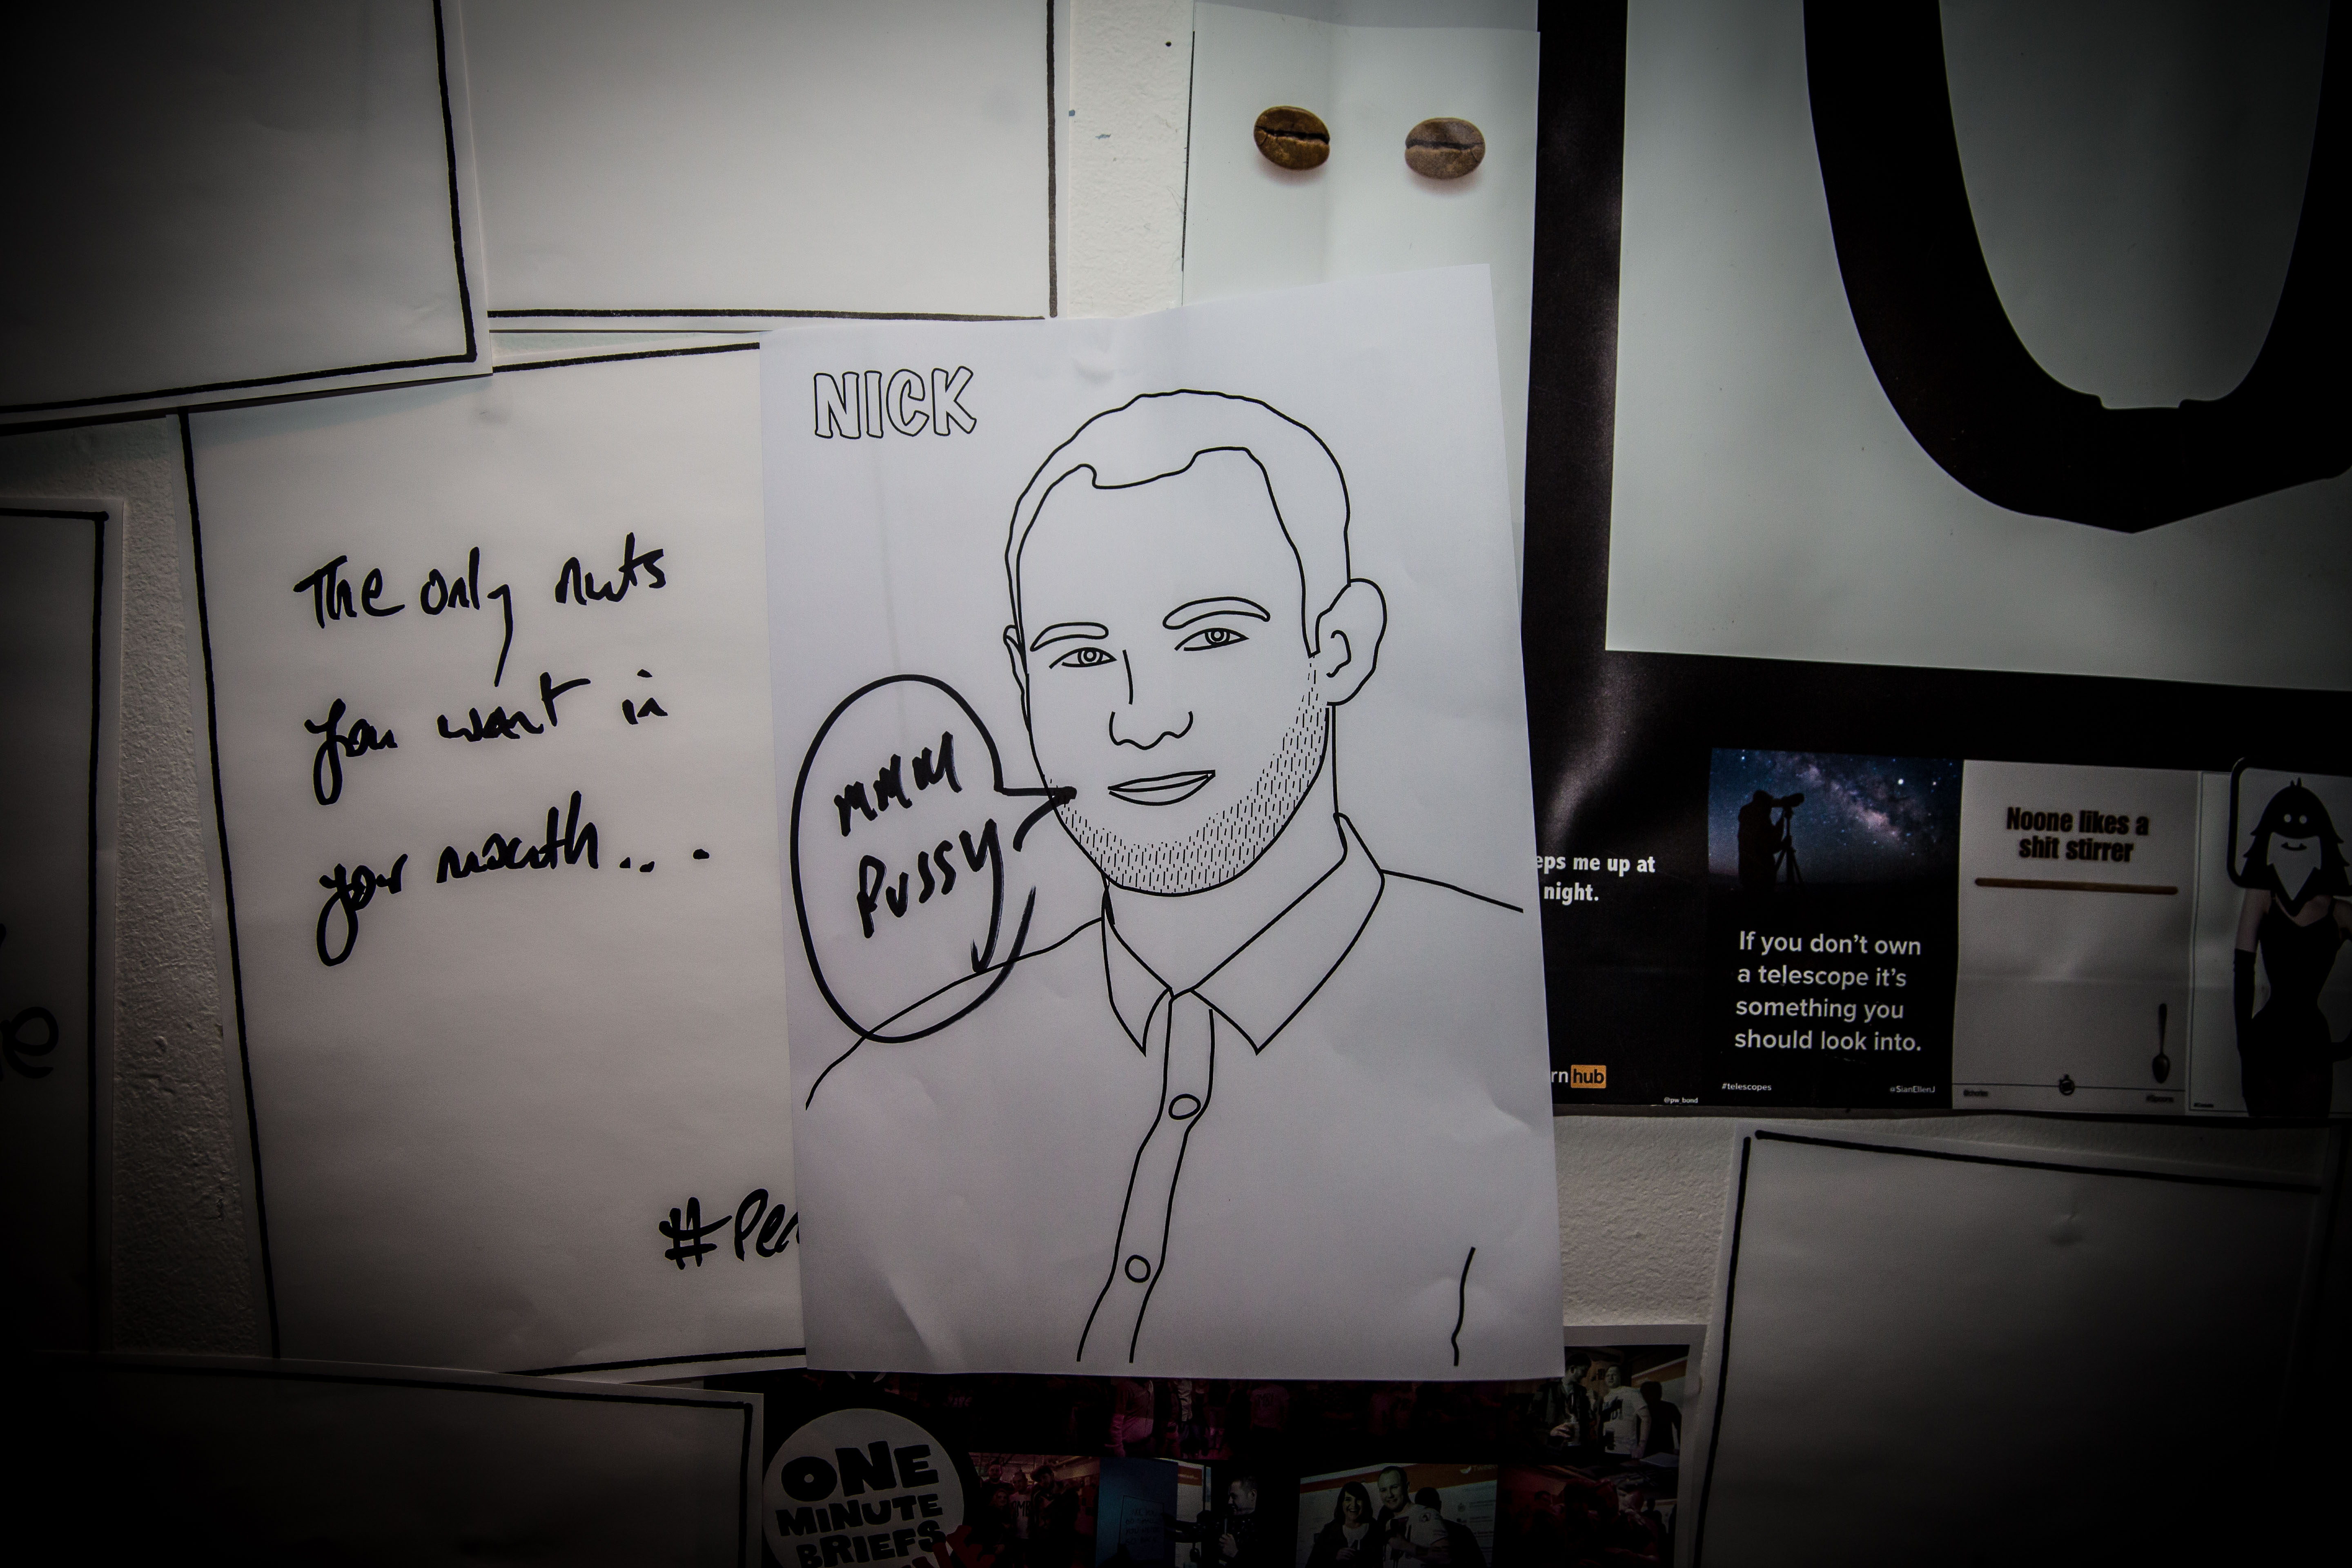 NICK
The only nuts
you want in
your mouth...
#Pea
MMM
PUSSY
eps me up at
night.
rn hub
@pw_bond
If you don't own
a telescope it's
something you
should look into.
#telescopes
@SianEllenJ
Noone likes a
shit stirrer
ONE
MINUTE
BRIEFS